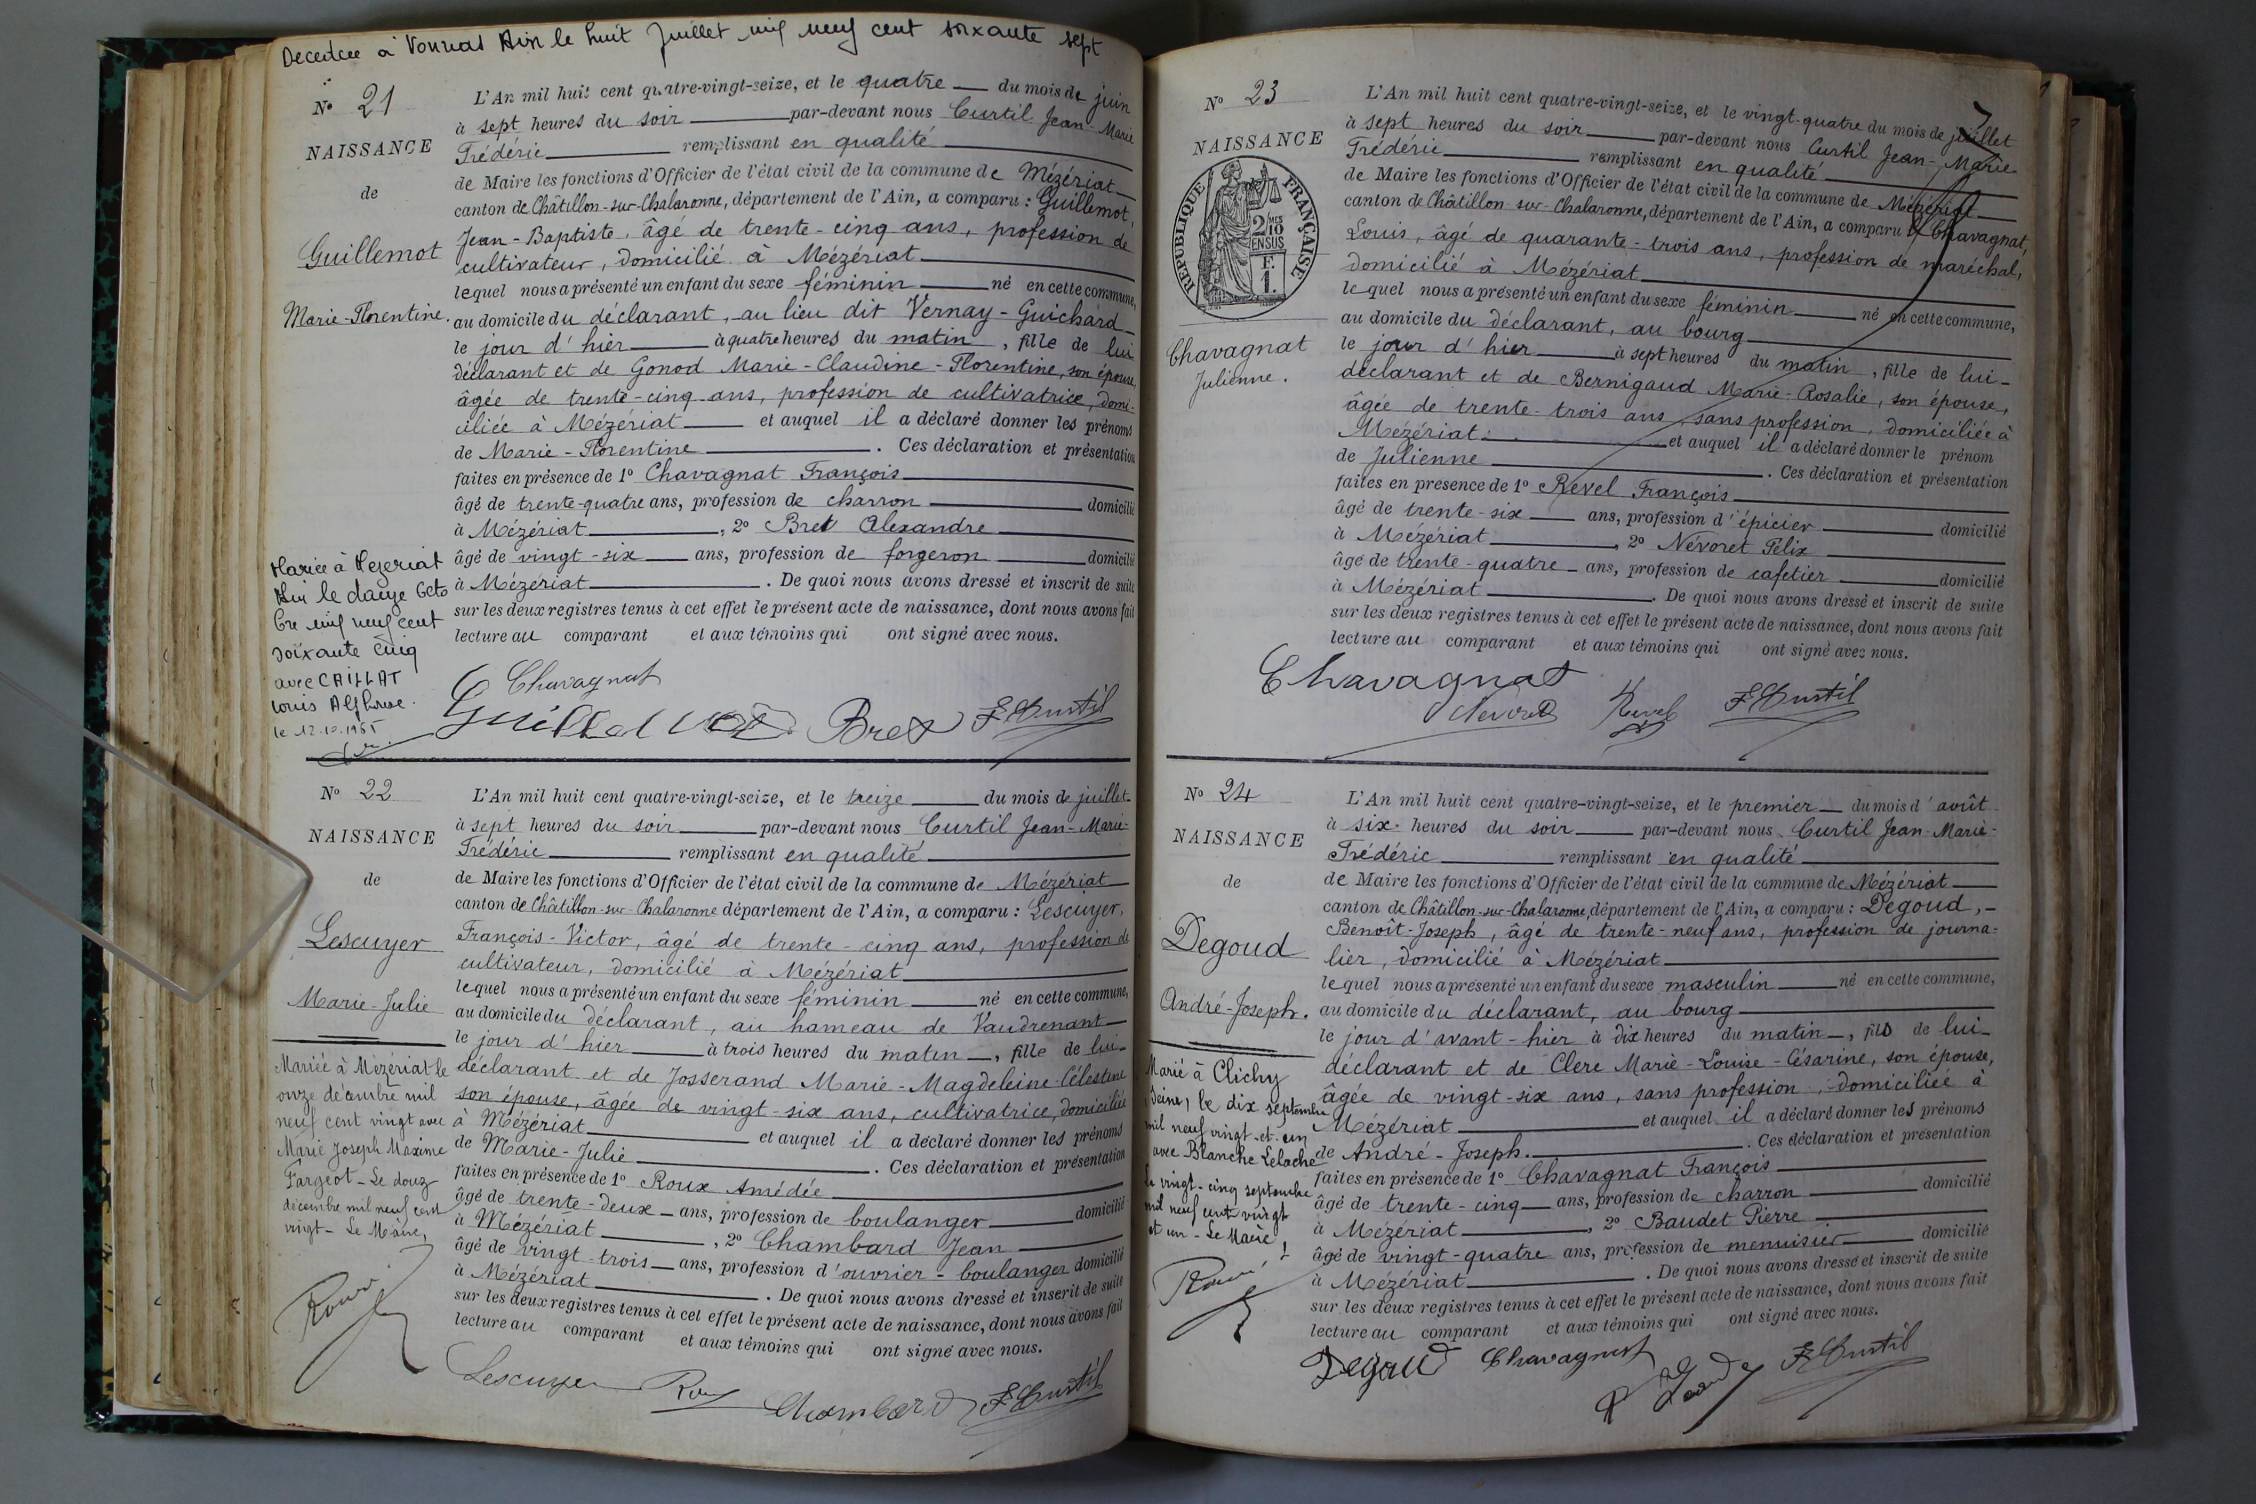 Décédée à Vonnas Ain le huit Juillet mil neuf cent soixante sept
N° 21
NAISSANCE
de
Guillemot
Marie-Florentine.
L'An mil huit cent quatre-vingt-seize, et le quatre du mois de juin
à sept heures du soir par-devant nous Curtil Jean-Marie
Frédéric remplissant en qualité
de Maire les fonctions d'Officier de l'état civil de la commune de Mézériat
canton de Châtillon-sur-Chalaronne, département de l'Ain, a comparu : Guillemot,
Jean-Baptiste, âgé de trente-cinq ans, profession de
cultivateur, domicilié à Mézériat
lequel nous a présenté un enfant du sexe féminin né en cette commune,
au domicile du déclarant, au lieu dit Vernay-Guichard
le jour d'hier à quatre heures du matin, fille de lui
déclarant et de Gonod Marie-Claudine-Florentine, son épouse,
âgée de trente-cinq ans, profession de cultivatrice, domi-
ciliée à Mézériat et auquel il a déclaré donner les prénoms
de Marie-Florentine. Ces déclaration et présentation
faites en présence de 1° Chavagnat François
âgé de trente-quatre ans, profession de charron domicilié
à Mézériat, 2° Bret Alexandre
âgé de vingt-six ans, profession de forgeron domicilié
à Mézériat. De quoi nous avons dressé et inscrit de suite
sur les deux registres tenus à cet effet le présent acte de naissance, dont nous avons fait
lecture au comparant et aux témoins qui ont signé avec nous.
Mariée à Mezeriat
Ain le douze Octo
bre mil neuf cent
soixante cinq
avec CAILLAT
Louis Alphonse.
le 12.10.1965
Chavagnat
Guillemot Bret F Curtil
N° 22
NAISSANCE
de
Lescuyer
Marie-Julie
L'An mil huit cent quatre-vingt-seize, et le treize du mois de juillet
à sept heures du soir par-devant nous Curtil Jean-Marie-
Frédéric remplissant en qualité
de Maire les fonctions d'Officier de l'état civil de la commune de Mézériat
canton de Châtillon-sur-Chalaronne département de l'Ain, a comparu : Lescuyer,
François-Victor, âgé de trente-cinq ans, profession de
cultivateur, domicilié à Mézériat
lequel nous a présenté un enfant du sexe féminin né en cette commune,
au domicile du déclarant, au hameau de Vaudrenant
le jour d'hier à trois heures du matin, fille de lui-
déclarant et de Josserand Marie-Magdeleine-Célestine
son épouse, âgée de vingt-six ans, cultivatrice, domiciliée
à Mézériat et auquel il a déclaré donner les prénoms
de Marie-Julie. Ces déclaration et présentation
faites en présence de 1° Roux Amédée
âgé de trente-deux ans, profession de boulanger domicilié
à Mézériat, 2° Chambard Jean
âgé de vingt-trois ans, profession d'ouvrier-boulanger domicilié
à Mézériat. De quoi nous avons dressé et inscrit de suite
sur les deux registres tenus à cet effet le présent acte de naissance, dont nous avons fait
lecture au comparant et aux témoins qui ont signé avec nous.
Mariée à Mézériat le
onze décembre mil
neuf cent vingt avec
Marie Joseph Maxime
Fargeot - Le douze
décembre mil neuf cent
vingt - Le Maire,
Lescuyer Roux Chambard F Curtil
N° 23
NAISSANCE
RÉPUBLIQUE FRANÇAISE
2 MES
10
EN SUS
F.
1.
Chavagnat
Julienne.
L'An mil huit cent quatre-vingt-seize, et le vingt-quatre du mois de juillet
à sept heures du soir par-devant nous Curtil Jean-Marie
Frédéric remplissant en qualité
de Maire les fonctions d'Officier de l'état civil de la commune de Mézériat
canton de Châtillon-sur-Chalaronne, département de l'Ain, a comparu : Chavagnat,
Louis, âgé de quarante-trois ans, profession de maréchal,
domicilié à Mézériat
lequel nous a présenté un enfant du sexe féminin né en cette commune,
au domicile du déclarant, au bourg
le jour d'hier à sept heures du matin, fille de lui-
déclarant et de Bernigaud Marie-Rosalie, son épouse,
âgée de trente-trois ans, sans profession, domiciliée à
Mézériat. et auquel il a déclaré donner le prénom
de Julienne. Ces déclaration et présentation
faites en présence de 1° Revel François
âgé de trente-six ans, profession d'épicier domicilié
à Mézériat, 2° Névoret Félix
âgé de trente-quatre ans, profession de cafetier domicilié
à Mézériat. De quoi nous avons dressé et inscrit de suite
sur les deux registres tenus à cet effet le présent acte de naissance, dont nous avons fait
lecture au comparant et aux témoins qui ont signé avec nous.
Chavagnat
Nevoret Revel F Curtil
N° 24
NAISSANCE
de
Degoud
André-Joseph.
L'An mil huit cent quatre-vingt-seize, et le premier du mois d'août
à six heures du soir par-devant nous Curtil Jean-Marie-
Frédéric remplissant en qualité
de Maire les fonctions d'Officier de l'état civil de la commune de Mézériat
canton de Châtillon-sur-Chalaronne, département de l'Ain, a comparu : Degoud,
Benoît-Joseph, âgé de trente-neuf ans, profession de journa-
lier, domicilié à Mézériat
lequel nous a présenté un enfant du sexe masculin né en cette commune,
au domicile du déclarant, au bourg
le jour d'avant-hier à dix heures du matin, fils de lui-
déclarant et de Clere Marie-Louise-Césarine, son épouse,
âgée de vingt-six ans, sans profession, domiciliée à
Mézériat et auquel il a déclaré donner les prénoms
de André-Joseph. Ces déclaration et présentation
faites en présence de 1° Chavagnat François
âgé de trente-cinq ans, profession de charron domicilié
à Mézériat, 2° Baudet Pierre
âgé de vingt-quatre ans, profession de menuisier domicilié
à Mézériat. De quoi nous avons dressé et inscrit de suite
sur les deux registres tenus à cet effet le présent acte de naissance, dont nous avons fait
lecture au comparant et aux témoins qui ont signé avec nous.
Marié à Clichy
(Seine) le dix septembre
mil neuf vingt-et-un
avec Blanche Lelache
Le vingt-cinq septembre
mil neuf cent vingt
et un - Le Maire,
Degoud Chavagnat F Curtil